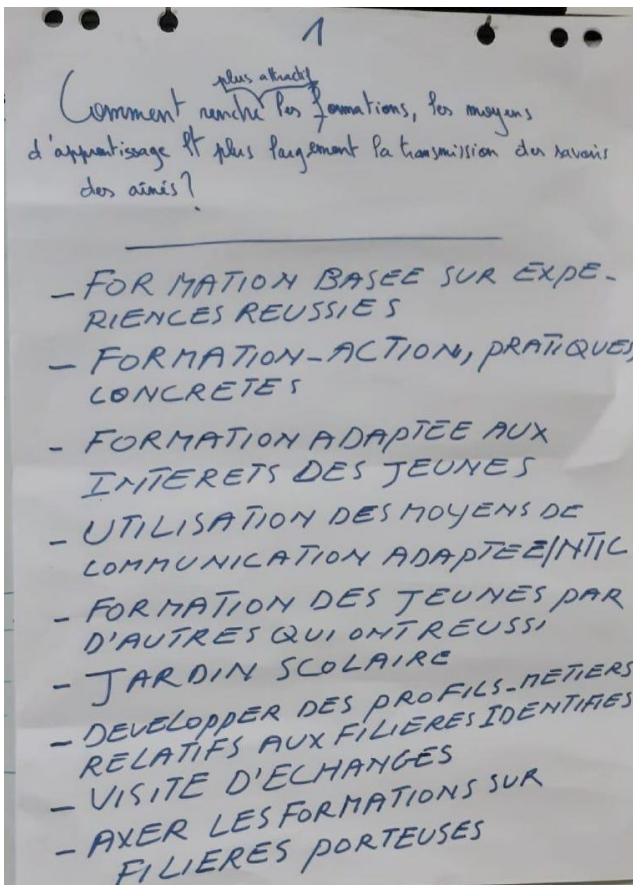 1
plus attractif
Comment rendre les formations, les moyens
d'apprentissage et plus largement la transmission des savoirs
des ainés?
- FORMATION BASEE SUR EXPE-
RIENCES REUSSIES
- FORMATION-ACTION, PRATIQUES
CONCRETES
- FORMATION ADAPTEE AUX
INTERETS DES JEUNES
- UTILISATION DES MOYENS DE
COMMUNICATION ADAPTEE/NTIC
- FORMATION DES JEUNES PAR
D'AUTRES QUI ONT REUSSI
- JARDIN SCOLAIRE
- DEVELOPPER DES PROFILS-METIERS
RELATIFS AUX FILIERES IDENTIFIES
- VISITE D'ECHANGES
- AXER LES FORMATIONS SUR
FILIERES PORTEUSES